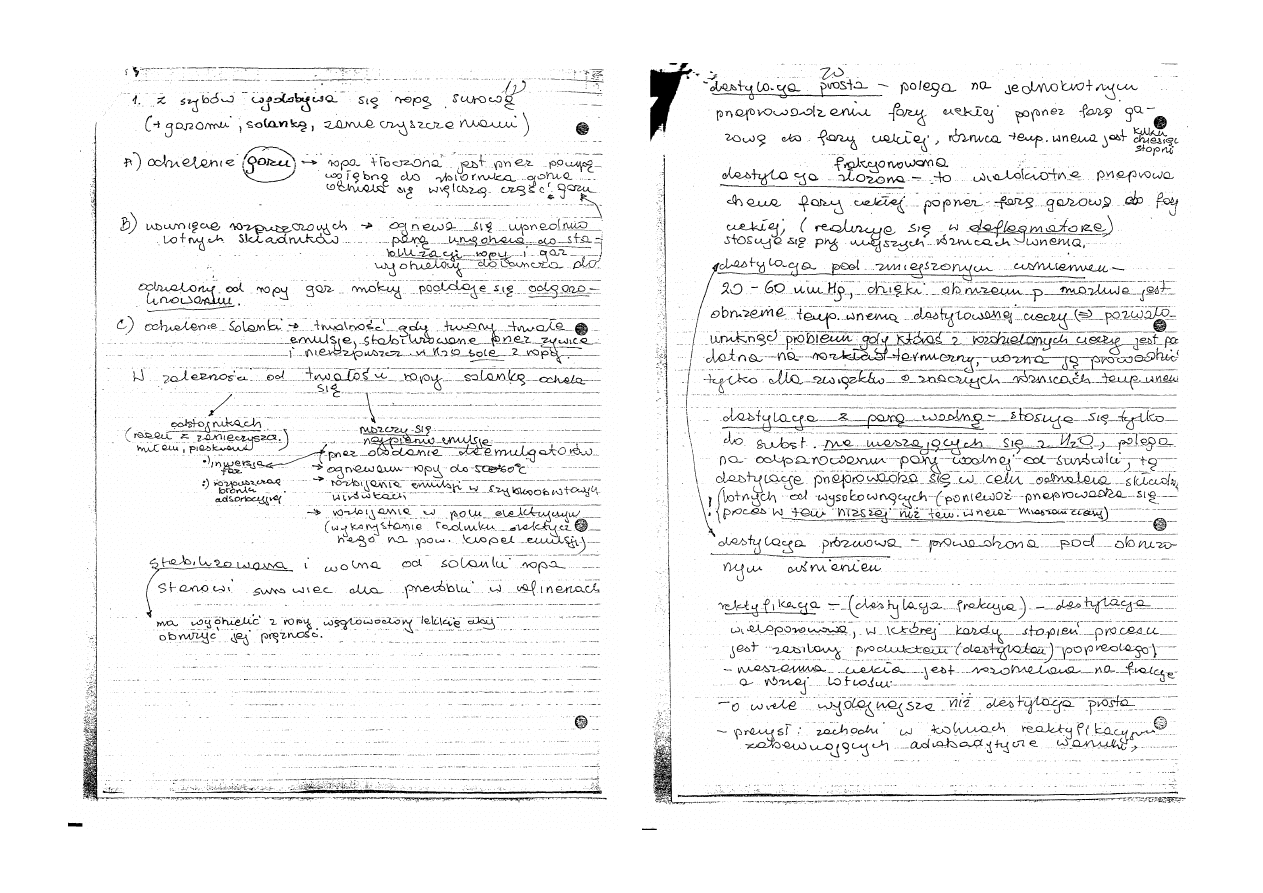 1. z szybów wydobywa się ropę surową
(+ gazami, solanką, zanieczyszczeniami)
A) oddzielenie gazu → ropa tłoczona jest przez pompę
wgłębną do zbiornika gdzie
oddziela się większą część gazu
B) usunięcie rozpuszczonych → ogrzewa się uprzednio
lotnych składników parą wodną do sta-
bilizacji ropy i gaz
wydzielony dołancza do
oddzielony od ropy gaz mokry poddaje się odgazo-
linowaniu.
C) oddzielenie solanki → trudność gdy tworzy trwałe
emulsje, stabilizowane przez żywice
i nierozpuszcz w H2O sole z ropy.
W zależności od trwałości ropy solankę oddziela
się
odstojnikach
(razem z zanieczyszcz.
mułem, piaskiem)
niszczy się
najpierw emulsję
przez dodanie deemulgatorów
•) inwersja
faz
•) rozpuszczają
błonki
adsorbcyjnej
→ ogrzewanie ropy do
→ rozbijanie emulsji w szybkoobrotowych
wirówkach
→ rozbijanie w polu elektrycznym
(wykorzystanie ładunku elektrycz
nego na pow. kropel emulsji)
Stabilizowana i wolna od solanki ropa
stanowi surowiec dla przeróbki w rafineriach
ma wydzielić z ropy węglowodory lekkie aby
obniżyć jej prężność.
20
destylacja prosta – polega na jednokrotnym
przeprowadzeniu fazy ciekłej poprzez fazę ga-
zową do fazy ciekłej, różnica temp. wrzenia jest kilku
dziesięc
stopni
frakcjonowana
destylacja złożona – to wielokrotne przeprowa
dzenie fazy ciekłej poprzez fazę gazową do fazy
ciekłej, (realizuje się w deflegmatorze)
stosuje się przy mniejszych różnicach wrzenia.
destylacja pod zmniejszonym ciśnieniem –
20 – 60 mm Hg, dzięki obniżeniu p możliwe jest
obniżenie temp. wrzenia destylowanej cieczy (⇒ pozwala
uniknąć problemu gdy któraś z rozdzielanych cieczy jest po
datna na rozkład termiczny, można ją prowadzić
tylko dla związków o znacznych różnicach temp. wrzen
destylacja z parą wodną – stosuje się tylko
do subst. nie mieszających się z H2O, polega
na odparowaniu pary wodnej od surówki, tą
destylację przeprowadza się w celu oddzielenia składn
lotnych od wysokowrzących (ponieważ przeprowadza się
proces w tem niższej niż tem. wrzenia mieszaniny)
destylacja próżniowa – prowadzona pod obniżo-
nym ciśnieniem
rektyfikacja – (destylacja frakcyjna) – destylacja
wielopoziomowa, w której każdy stopień procesu
jest zasilany produktem (destylatem) poprzedniego)
– mieszanina ciekła jest rozdzielana na frakcje
o różnej lotności
– o wiele wydajniejsza niż destylacja prosta
– przemysł: zachodzi w kolumnach reaktyfikacyjnych
zapewniających adiabatyczne warunki,